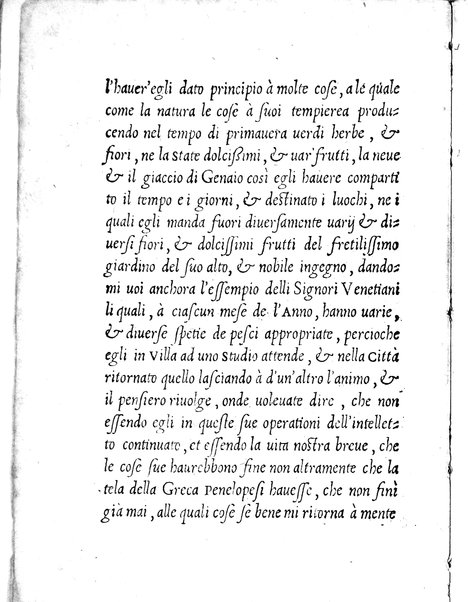 l'hauer'egli dato principio à molte cose, a le quale
come la natura le cose à suoi tempierea produ-
cendo nel tempo di primauera uerdi herbe, &
fiori, ne la State dolcißimi, & uar'frutti, la neue
& il giaccio di Genaio così egli hauere comparti
to il tempo e i giorni, & destinato i luochi, ne i
quali egli manda fuori diuersamente uarij & di-
uersi fiori, & dolcissimi frutti del fretilissimo
giardino del suo alto, & nobile ingegno, dando-
mi uoi anchora l'essempio delli Signori Venetiani
li quali, à ciascun mese de l'Anno, hanno uarie,
& diuerse spetie de pesci appropriate, percioche
egli in Villa ad uno Studio attende, & nella Città
ritornato quello lasciando à d'un'altro l'animo, &
il pensiero riuolge, onde uoleuate dire, che non
essendo egli in queste sue operationi dell'intellet-
to continuato, et essendo la uita nostra breue, che
le cose sue haurebbono fine non altramente che la
tela della Greca Penelopesi hauesse, che non finì
già mai, alle quali cose se bene mi ritorna à mente